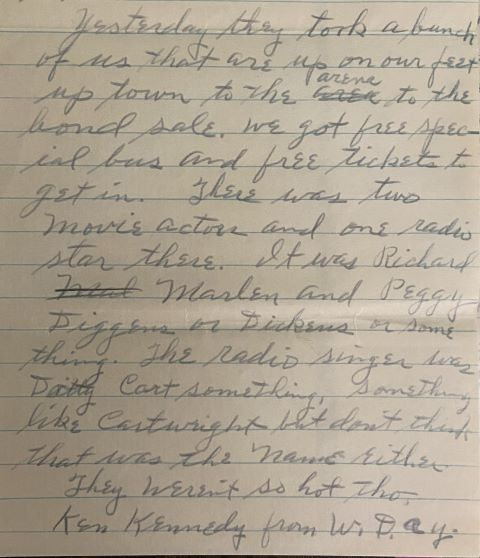 Yesterday they took a bunch
of us that are up on our feet
up town to the arena to the
bond sale. We got free spec-
ial bus and free tickets to
get in. There was two
movie actors and one radio
star there. It was Richard
Marlen and Peggy
Diggens or Dickens or some
thing. The radio singer was
Dotty Cart something, something
like Cartwright but dont think
that was the name either
They weren't so hot tho,
Ken Kennedy from W.D.a y.